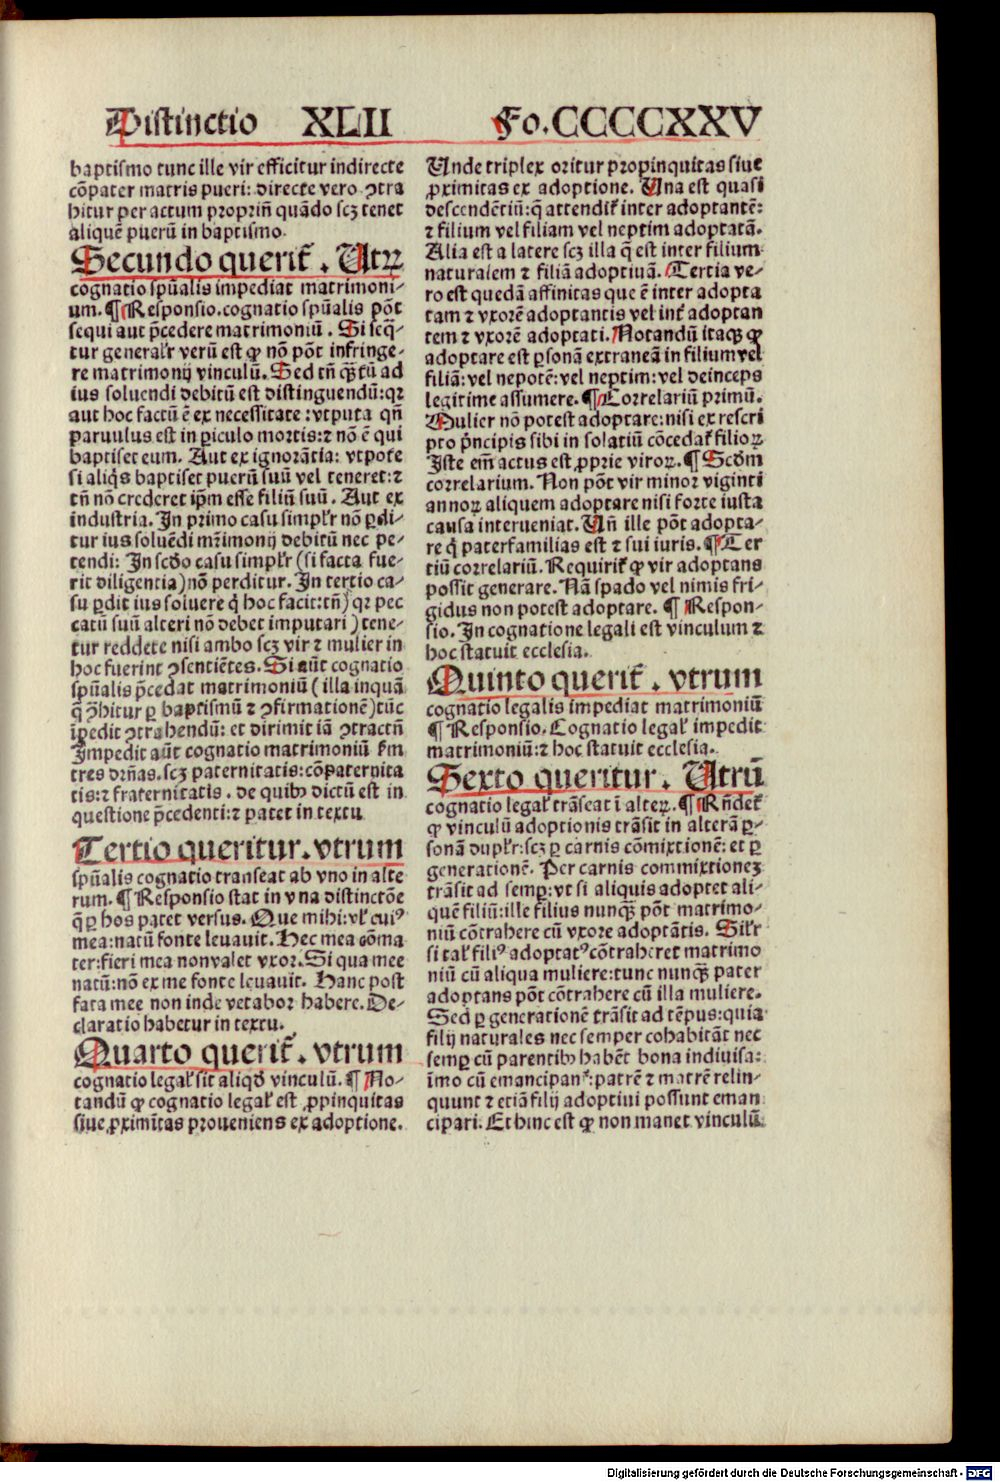 Distinctio XLII Fo.CCCCCXXV
baptismo tunc ille vir efficitur indirecte
cõpater matris pueri: directe vero ꝯtra
hitur per actum propriũ quãdo scꝫ tenet
aliquẽ puerũ in baptismo.
Secundo querit̃. Utꝝ
cognatio spũalis impediat matrimoni-
um. ¶ Responsio. cognatio spũalis põt
sequi aut p̃cedere matrimoniũ. Si seq̃-
tur generalr̃ verũ est ꝙ nõ põt infringe-
re matrimonij vinculũ. Sed tñ quãtũ ad
ius soluendi debitũ est distinguendũ: qꝛ
aut hoc factũ ẽ ex necessitate: vtputa qñ
paruulus est in ꝑiculo mortis: ⁊ nõ ẽ qui
baptiset eum. Aut ex ignorãtia: vtpote
si aliq̇s baptiset puerũ suũ vel teneret: ⁊
tñ nõ crederet ip̃m esse filiũ suũ. Aut ex
industria. In primo casu simplr̃ nõ ꝑdi-
tur ius soluẽdi mr̃imonij debitũ nec pe-
tendi: In scd̃o casu simplr̃ (si facta fue-
rit diligentia) nõ perditur. In tertio ca-
su ꝑdit ius soluere q̇ hoc facit: tñ) qꝛ pec
catũ suũ alteri nõ debet imputari) tene-
tur reddere nisi ambo scꝫ vir ⁊ mulier in
hoc fuerint ꝯsentiẽtes. Si aũt cognatio
spũalis p̃cedat matrimoniũ (illa inquã
q̃ ꝯ̃hitur ꝑ baptismũ ⁊ ꝯfirmationẽ) tũc
ip̃edit ꝯtrahendũ: et dirimit iã ꝯtractũ
Impedit aũt cognatio matrimoniũ ẜm
tres dr̃ñas. scꝫ paternitatis: cõpaternita
tis: ⁊ fraternitatis. de quibꝰ dictũ est in
questione p̃cedenti: ⁊ patet in textu
Tertio queritur. vtrum
spũalis cognatio transeat ab vno in alte
rum. ¶ Responsio stat in vna distinctõe
q̃ ꝑ hos patet versus. Que mihi: vl̃ cuiꝰ
mea: natũ fonte leuauit. Hec mea cõma
ter: fieri mea non valet vxor. Si qua mee
natũ: nõ ex me fonte leuauit. Hanc post
fata mee non inde vetabor habere. De-
claratio habetur in textu.
Quarto querit̃. vtrum
cognatio legal̃ sit aliqd̃ vinculũ. ¶ No-
tandũ ꝙ cognatio legal̃ est ꝓpinquitas
siue ꝓximitas proueniens ex adoptione.
Unde triplex oritur propinquitas siue
ꝓximitas ex adoptione. Una est quasi
descendẽtiũ: q̃ attendit̃ inter adoptantẽ:
⁊ filium vel filiam vel neptim adoptatã.
Alia est a latere scꝫ illa q̃ est inter filium
naturalem ⁊ filiã adoptiuã. Tertia ve-
ro est quedã affinitas que ẽ inter adopta
tam ⁊ vxorẽ adoptantis vel int̃ adoptan
tem ⁊ vxorẽ adoptati. Notandũ itaqꝫ ꝙ
adoptare est ꝑsonã extraneã in filium vel
filiã: vel nepotẽ: vel neptim: vel deinceps
legitime assumere. ¶ Correlariũ primũ.
Mulier nõ potest adoptare: nisi ex rescri
pto p̃ncipis sibi in solatiũ cõcedat̃ filioꝝ
Iste em̃ actus est ꝓprie viroꝝ. ¶ Scd̃m
correlarium. Non põt vir minor viginti
annoꝝ aliquem adoptare nisi forte iusta
causa interueniat. Uñ ille põt adopta-
re q̇ paterfamilias est ⁊ sui iuris. ¶ Ter
tiũ correlariũ. Requirit̃ ꝙ vir adoptans
possit generare. Nã spado vel nimis fri-
gidus non potest adoptare. ¶ Respon-
sio. In cognatione legali est vinculum ⁊
hoc statuit ecclesia.
Quinto querit̃. vtrum
cognatio legalis impediat matrimoniũ
¶ Responsio. Cognatio legal̃ impedit
matrimoniũ: ⁊ hoc statuit ecclesia.
Sexto queritur. Utrũ
cognatio legal̃ trãseat ĩ alteꝝ. ¶ Rñdet̃
ꝙ vinculũ adoptionis trãsit in alterã ꝑ-
sonã duplr̃: scꝫ ꝑ carnis cõmixtionẽ: et ꝑ
generationẽ. Per carnis commixtionẽ
trãsit ad semꝑ: vt si aliquis adoptet ali-
quẽ filiũ: ille filius nunqȝ̃ põt matrimo-
niũ cõtrahere cũ vxore adoptãtis. Sil̃r
si tal̃ filiꝰ adoptatꝰ cõtraheret matrimo
niũ cũ aliqua muliere: tunc nunqȝ̃ pater
adoptans põt cõtrahere cũ illa muliere.
Sed ꝑ generationẽ trãsit ad tẽpus: quia
filij naturales nec semper cohabitãt nec
semꝑ cũ parentibꝰ habẽt bona indiuisa:
ĩmo cũ emancipanᷣ: patrẽ ⁊ matrẽ relin-
quunt ⁊ etiã filij adoptiui possunt eman
cipari. Et hinc est ꝙ non manet vinculũ
Digitalisierung gefördert durch die Deutsche Forschungsgemeinschaft - DFG